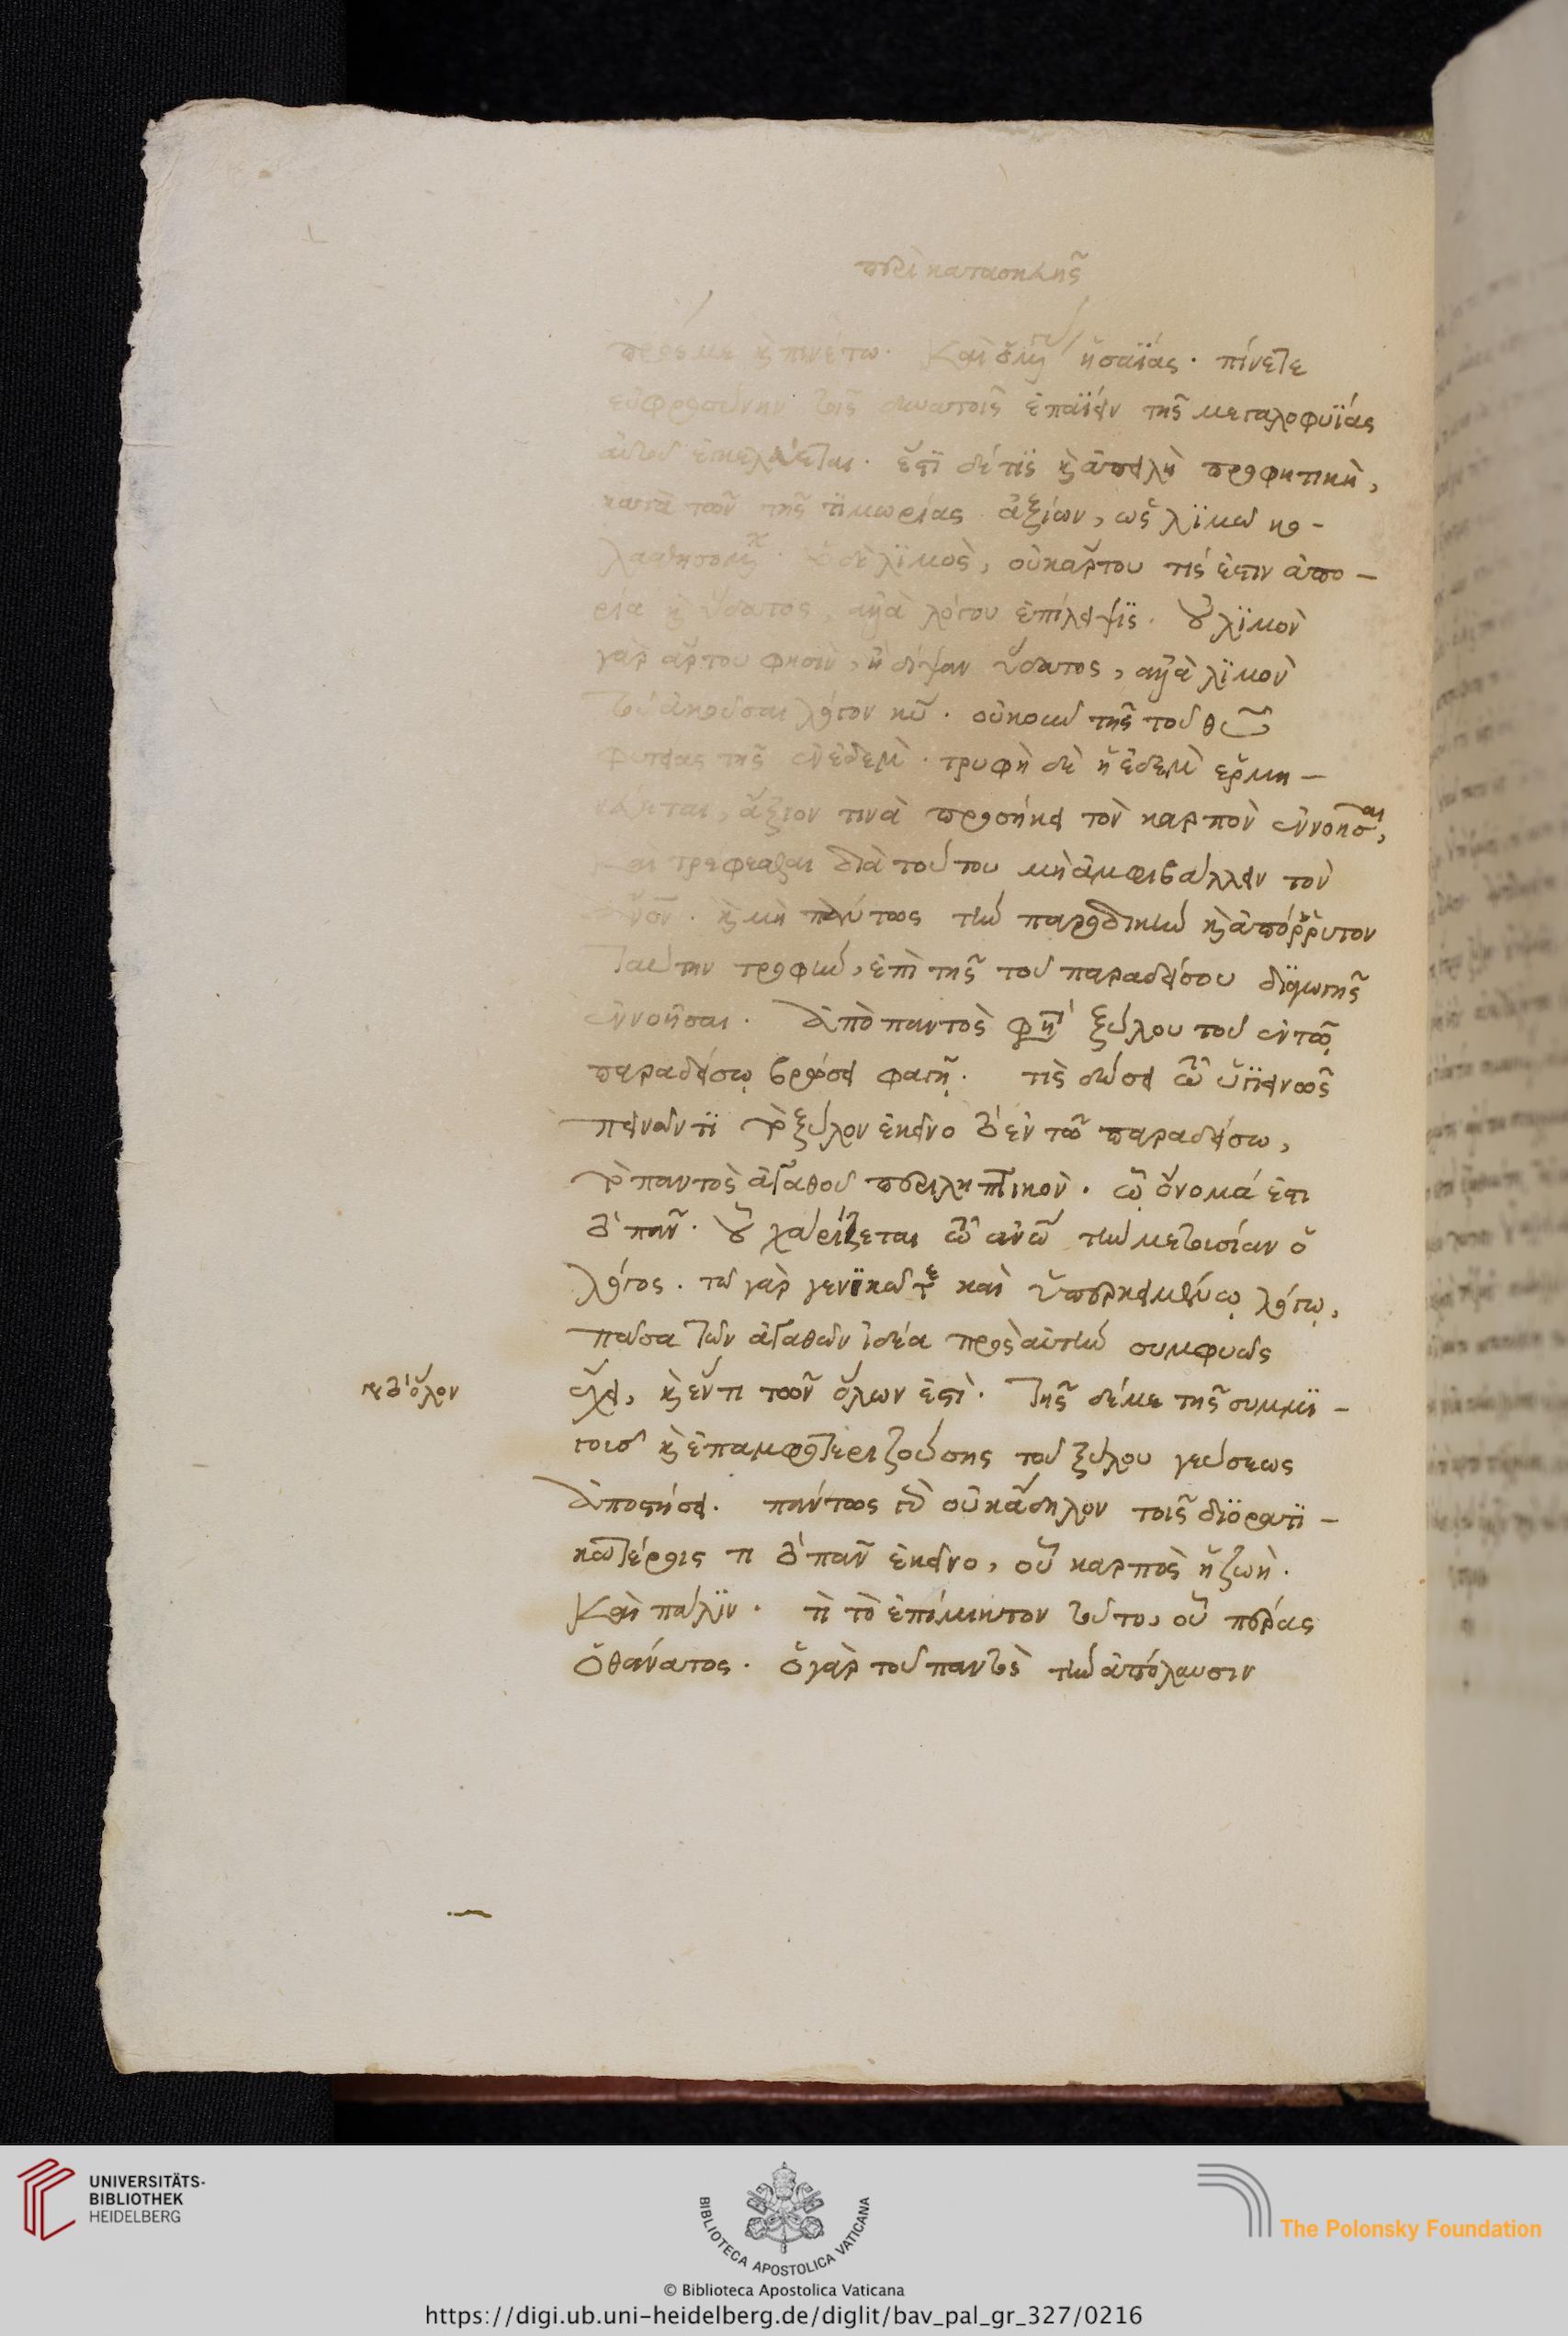 περὶ κατασκευῆς
πρός με καὶ πινέτω. Καὶ ὁ μέγας ἡσαΐας. πίνετε
εὐφροσύνην τοῖς δυνατοῖς ἐπαΐειν τῆς μεγαλοφυΐας
αὐτοῦ ἐγκελεύεται. ἔστι δέ τις καὶ ἀπειλὴ προφητικὴ,
κατὰ τῶν τῆς τιμωρίας ἀξίων, ὡς λϊμῶ κο-
λασθησομένων. ὁ δὲ λϊμὸς, οὐκ ἄρτου τίς ἐστιν ἀπο-
ρία καὶ ὕδατος, ἀλλὰ λόγου ἐπίλειψις. οὐ λϊμὸν
γὰρ ἄρτου φησὶν, ἢ δίψαν ὕδατος, ἀλλὰ λϊμὸν
τοῦ ἀκοῦσαι λόγον κυ. οὐκοῦν τῆς τοῦ θυ
φυτείας τῆς ἐν ἐδὲμ. τρυφὴ δὲ ἡ ἐδὲμ ἑρμη-
νεύεται, ἄξιόν τινα προσήκει τὸν καρπὸν ἐννοῆσαι,
Και τρέφεσθαι διὰ τούτου μὴ ἀμφιβάλλειν τὸν
ἄνον. καὶ μὴ πάντως τὴν παροδικὴν καὶ ἀπόρρυτον
ταύτην τροφὴν, ἐπὶ τῆς τοῦ παραδείσου διαγωγῆς
ἐννοῆσαι. Ἀπὸ παντὸς φησὶ ξύλου τοῦ ἐν τῷ
παραδείσῳ βρώσει φαγῇ. τίς δώσει τῷ ὑγιεινῶς
πεινῶντι τὸ ξύλον ἐκεῖνο τὸ ἐν τῶ παραδείσω,
τὸ παντὸς ἀγαθοῦ περιληπτικὸν. ᾧ ὄνομά ἐστι
τὸ πᾶν. οὗ χαρίζεται τῶ ἀνω τὴν μετουσίαν ὁ
λόγος. τῶ γὰρ γενϊκῶ τε καὶ ὑπερκειμένῳ λόγῳ,
πᾶσα τῶν ἀγαθῶν ἰδέα πρὸς αὑτὴν συμφυῶς
καὶ τὸ ὅλον
ἔχει, καὶ ἕν τι τῶν ὅλων ἐστὶ. Τῆς δέ με τῆς συμμϊ-
γοῦς καὶ ἐπαμφοτεριζούσης τοῦ ξύλου γεύσεως
Ἀποστήσει. πάντως γὰρ οὐκ ἄδηλον τοῖς διορατι-
κωτέροις τι τὸ πᾶν ἐκεῖνο, οὗ καρπὸς ἡ ζωὴ.
Καὶ πάλϊν. τὶ τὸ ἐπίμικτον τοῦτο, οὗ πέρας
ὁ θάνατος. ὁ γὰρ τοῦ παντὸς τὴν ἀπόλαυσιν
UNIVERSITÄTS-
BIBLIOTHEK
HEIDELBERG
BIBLIOTECA APOSTOLICA VATICANA
The Polonsky Foundation
© Biblioteca Apostolica Vaticana
https://digi.ub.uni-heidelberg.de/diglit/bav_pal_gr_327/0216